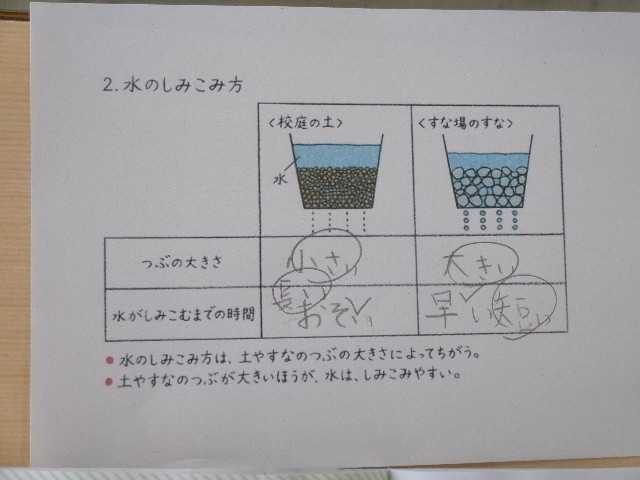 2.水のしみこみ方
〈校庭の土〉
〈すな場のすな〉
水
つぶの大きさ
小さい
大きい
水がしみこむまでの時間
長い
おそい
早い
短い
● 水のしみこみ方は、土やすなのつぶの大きさによってちがう。
● 土やすなのつぶが大きいほうが、水は、しみこみやすい。